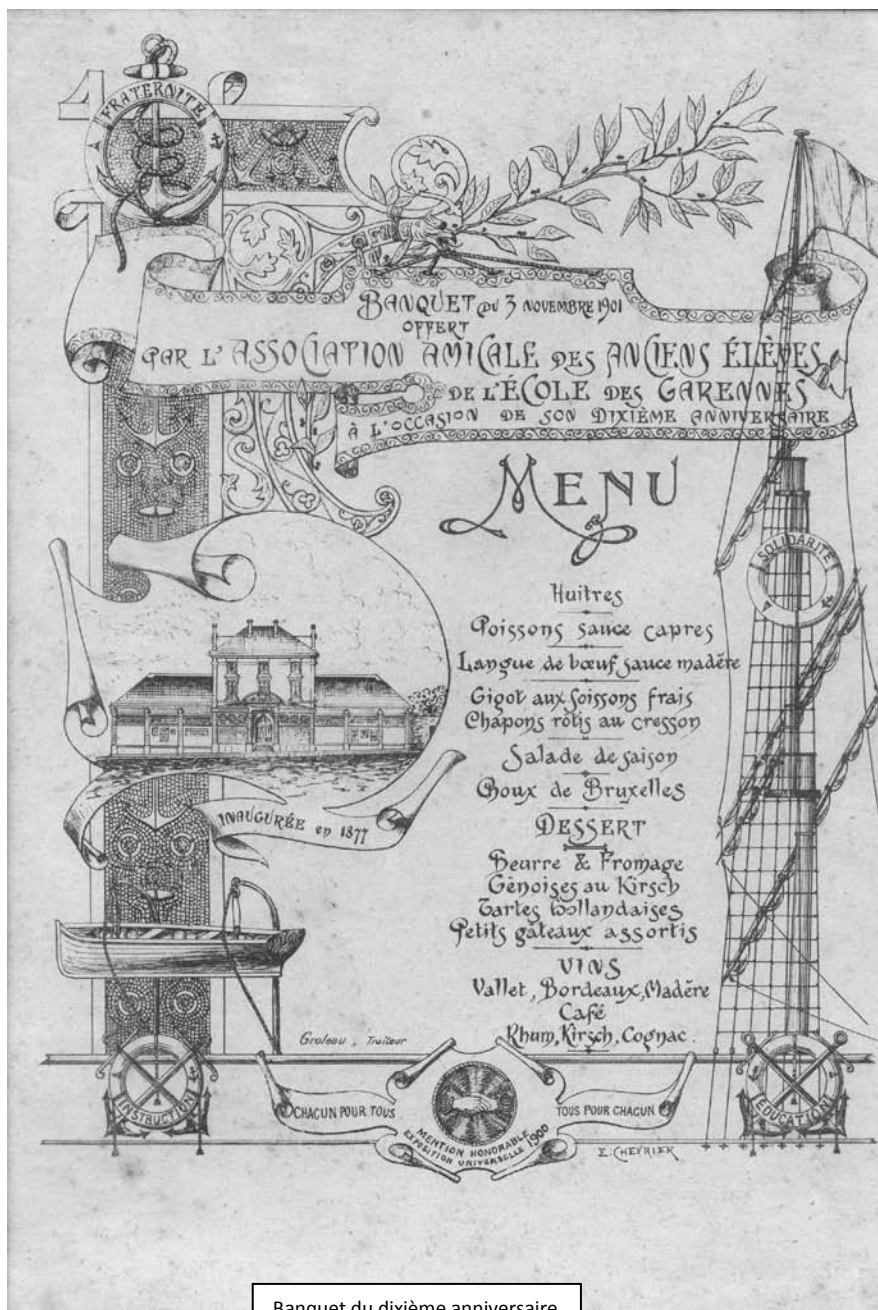 FRATERNITÉ
BANQUET DU 3 NOVEMBRE 1901
OFFERT
PAR L'ASSOCIATION AMICALE DES ANCIENS ÉLÈVES
DE L'ÉCOLE DES GARENNES
À L'OCCASION DE SON DIXIÈME ANNIVERSAIRE
MENU
SOLIDARITÉ
Huitres
Poissons sauce capres
Langue de bœuf sauce madère
Gigot aux soissons frais
Chapons rôtis au cresson
Salade de saison
Choux de Bruxelles
DESSERT
Beurre & Fromage
Génoises au Kirsch
Tartes hollandaises
Petits gâteaux assortis
VINS
Vallet, Bordeaux, Madère
Café
Rhum, Kirsch, Cognac.
INAUGURÉE en 1877
Groleau, Traiteur
INSTRUCTION
CHACUN POUR TOUS
TOUS POUR CHACUN
MENTION HONORABLE
EXPOSITION UNIVERSELLE 1900
EDUCATION
E. CHEVRIER
Banquet du dixième anniversaire